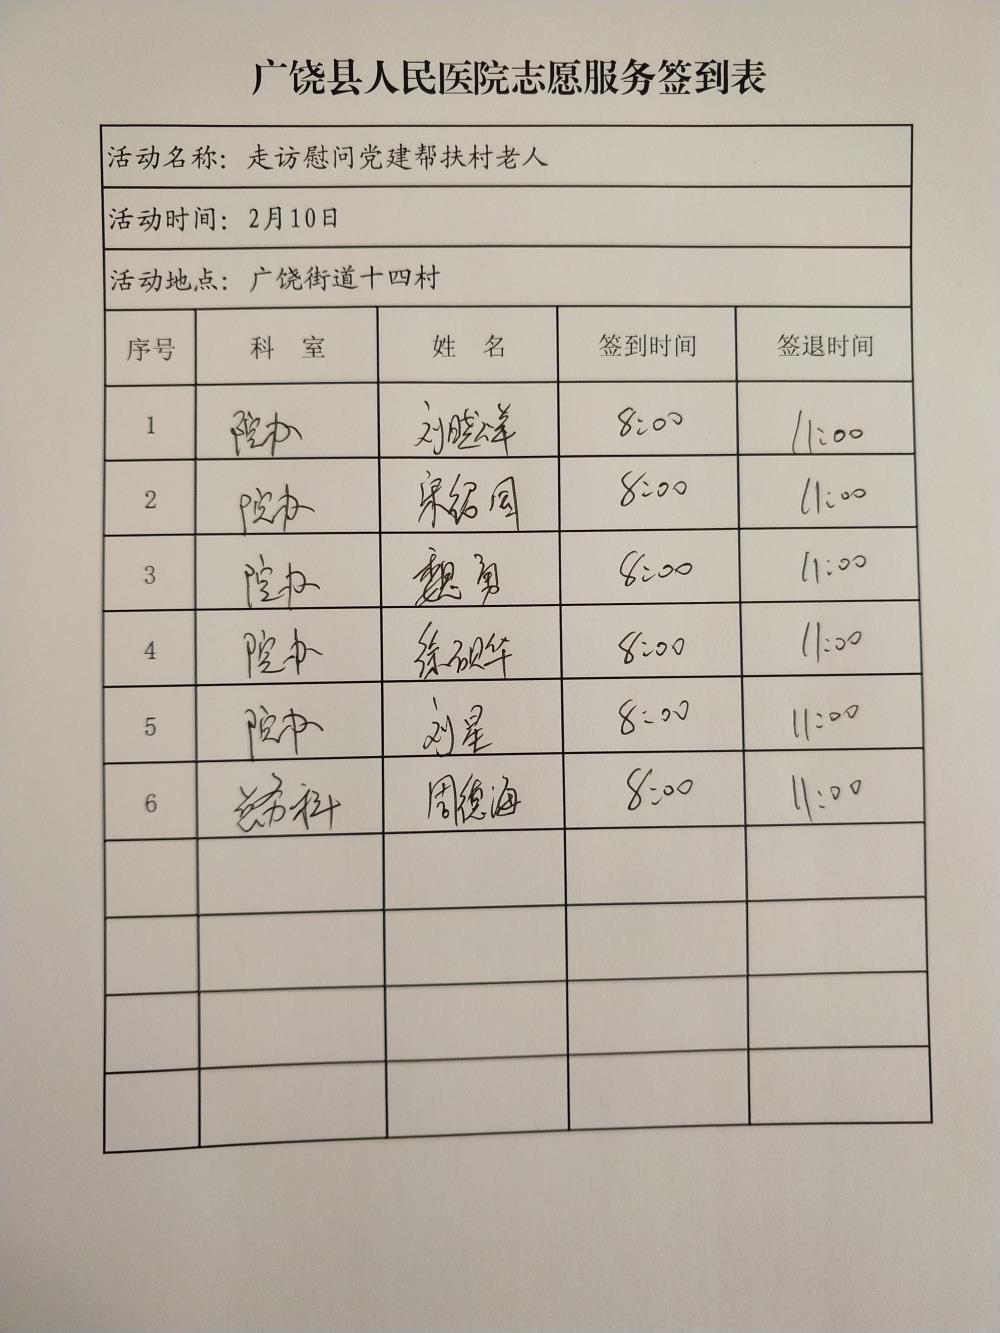 广饶县人民医院志愿服务签到表
活动名称：走访慰问党建帮扶村老人
活动时间：2月10日
活动地点：广饶街道十四村
序号 科 室 姓 名 签到时间 签退时间
1 院办 刘晓祥 8:00 11:00
2 院办 梁绍国 8:00 11:00
3 院办 魏勇 8:00 11:00
4 院办 徐砚华 8:00 11:00
5 院办 刘星 8:00 11:00
6 总务科 周德海 8:00 11:00